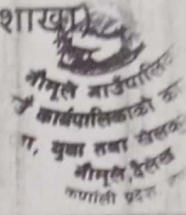 शाखा)
नौमूले गाउँपालिका
कार्यपालिकाको का
ा, युवा तथा खेलक
नौमूले, दैलेख
कर्णाली प्रदेश